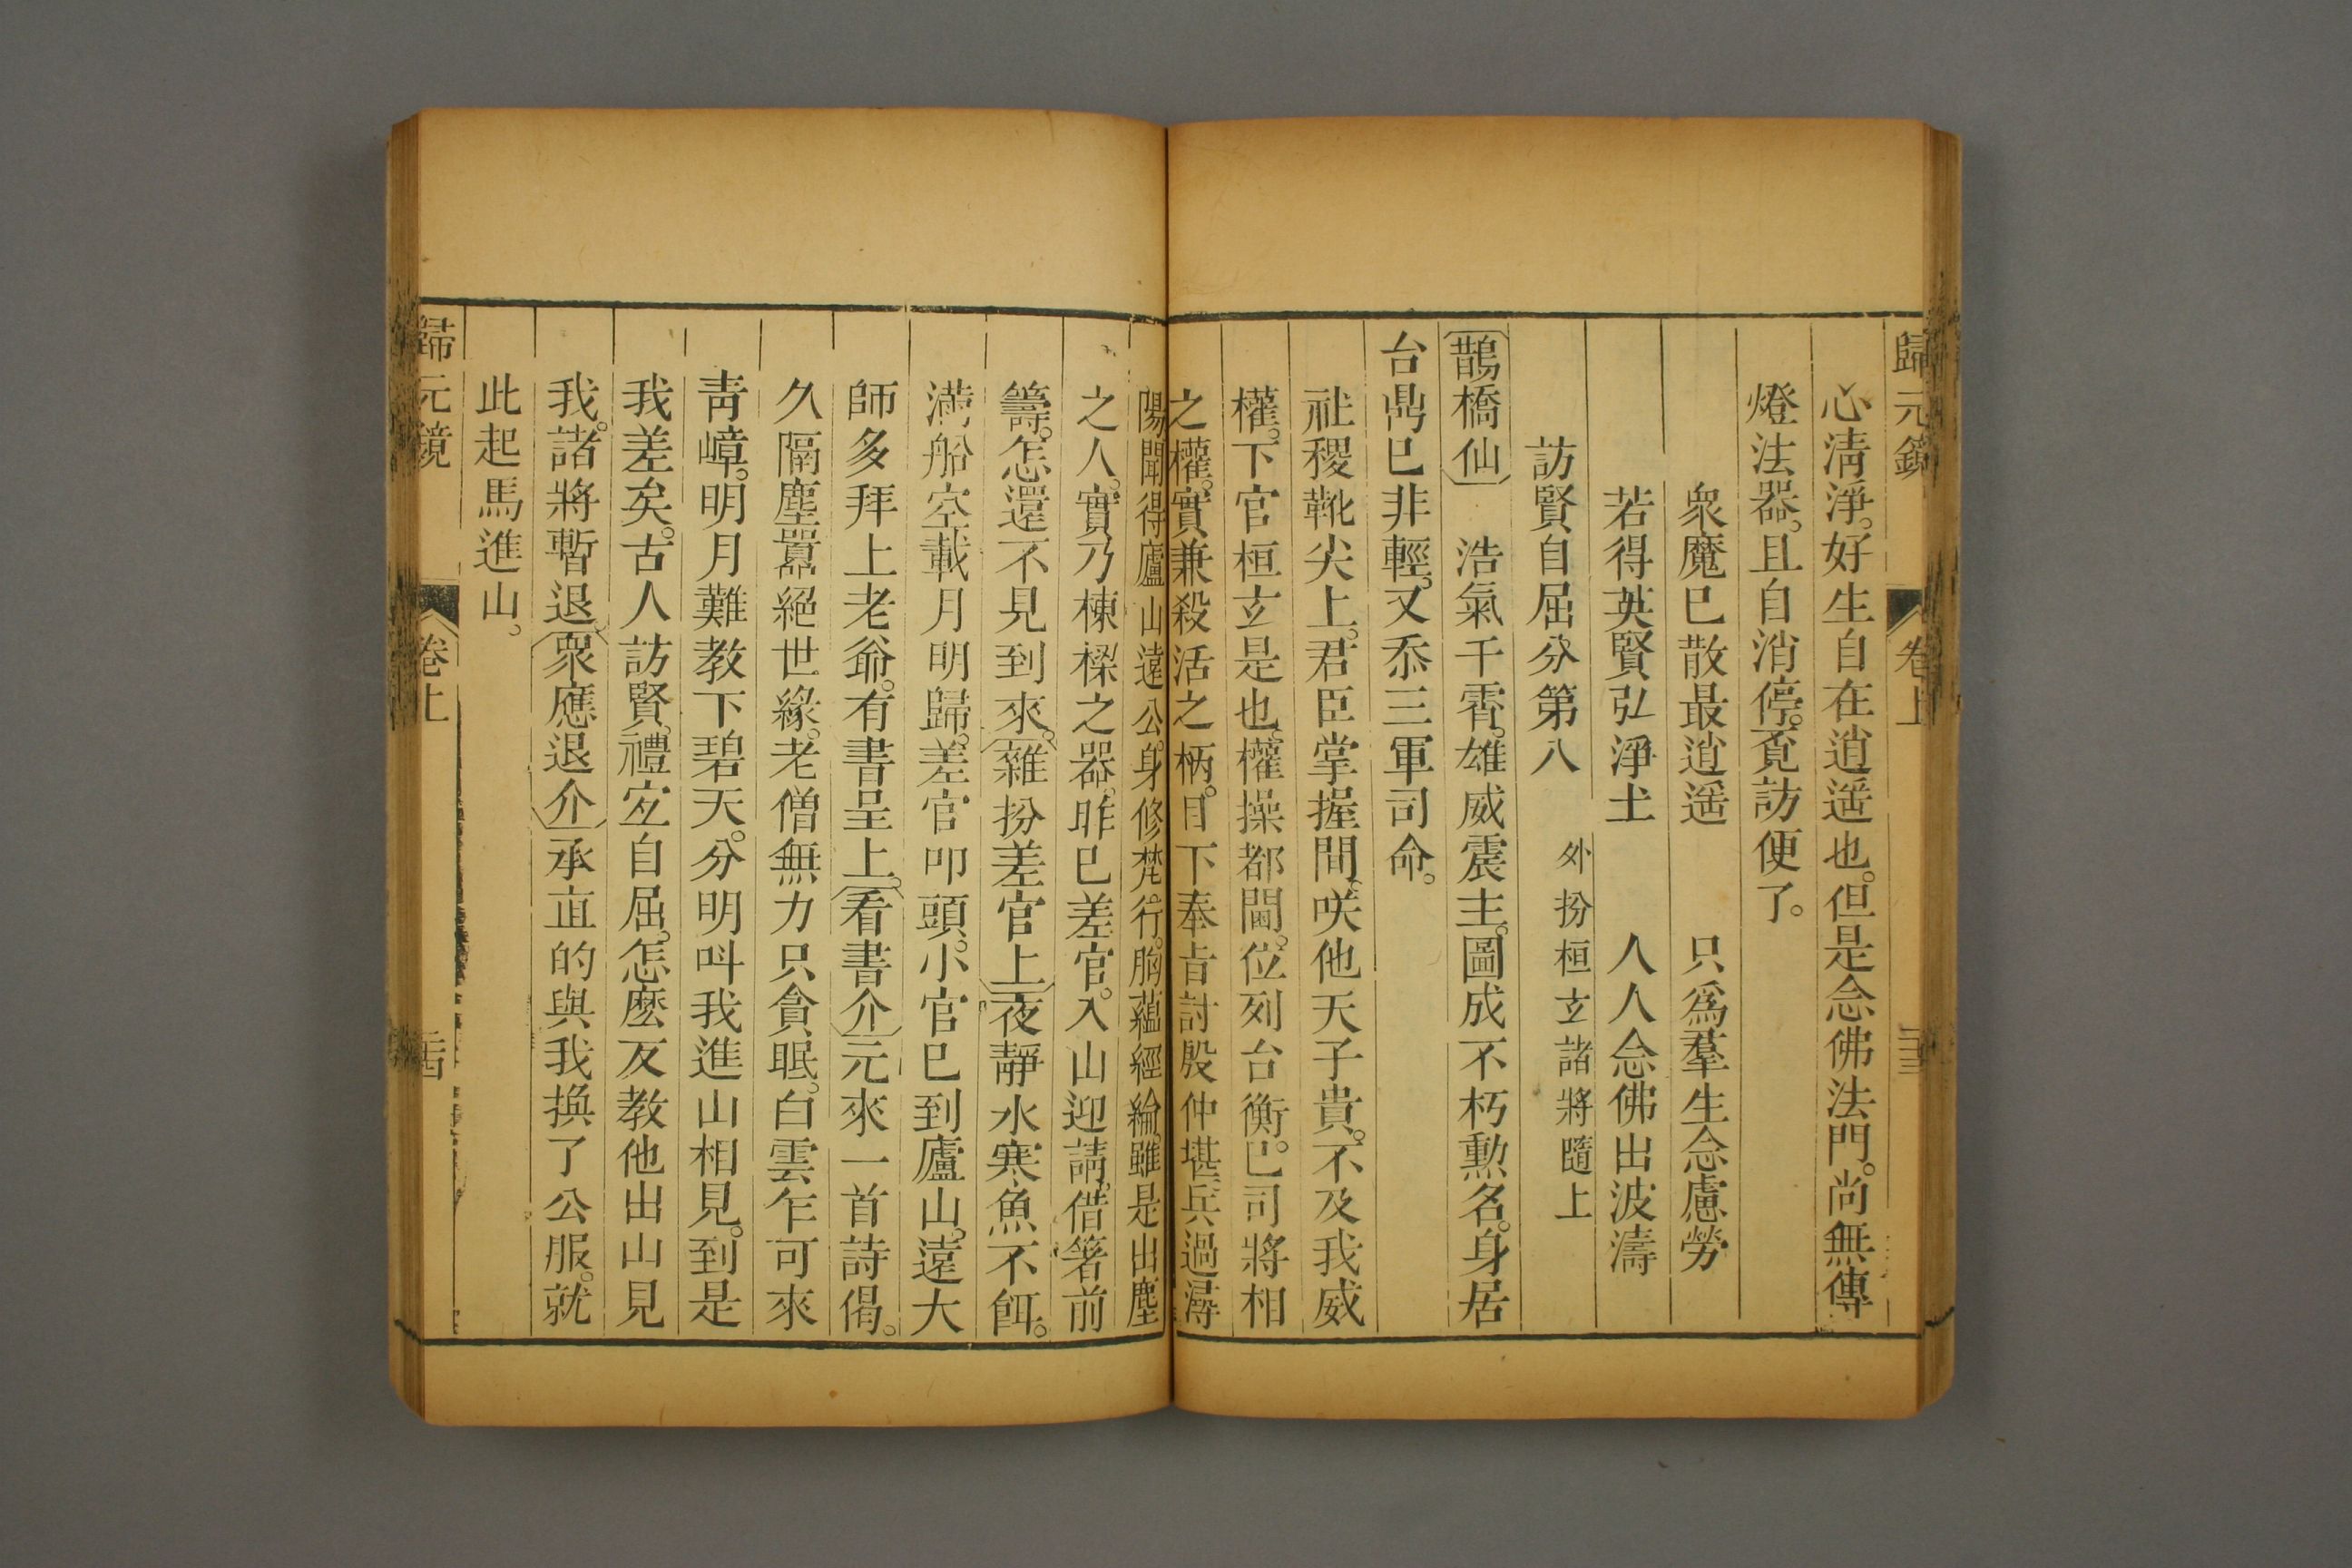 歸元鏡 卷上 三三
心淸淨。好生自在逍遥也。但是念佛法門。尚無傳
燈法器。且自消停。覔訪便了。
衆魔巳散最逍遥 只爲羣生念慮勞
若得英賢弘淨土 人人念佛出波濤
訪賢自屈分第八 外扮桓玄諸將隨上
鵲橋仙 浩氣千霄。雄威震主。圖成不朽勲名。身居
台鼎巳非輕。又忝三軍司命。
社稷靴尖上。君臣掌握間。咲他天子貴。不及我威
權。下官桓玄是也。權操都閫。位列台衡。巳司將相
之權。實兼殺活之柄。目下奉旨討殷仲堪兵過潯
陽聞得廬山遠公。身修梵行。胸蘊經綸。雖是出塵
之人。實乃棟樑之器。昨巳差官。入山迎請。借箸前
籌。怎還不見到來。雜扮差官上夜靜水寒魚不餌。
滿船空載月明歸。差官叩頭。小官巳到廬山。遠大
師多拜上老爺。有書呈上。看書介元來一首詩偈。
久隔塵囂絕世緣。老僧無力只貪眠。白雲乍可來
靑嶂。明月難教下碧天。分明呌我進山相見。到是
我差矣。古人訪賢。禮宐自屈。怎麽反教他出山見
我。諸將暫退衆應退介承直的與我換了公服。就
此起馬進山。
歸元鏡 卷上 三四